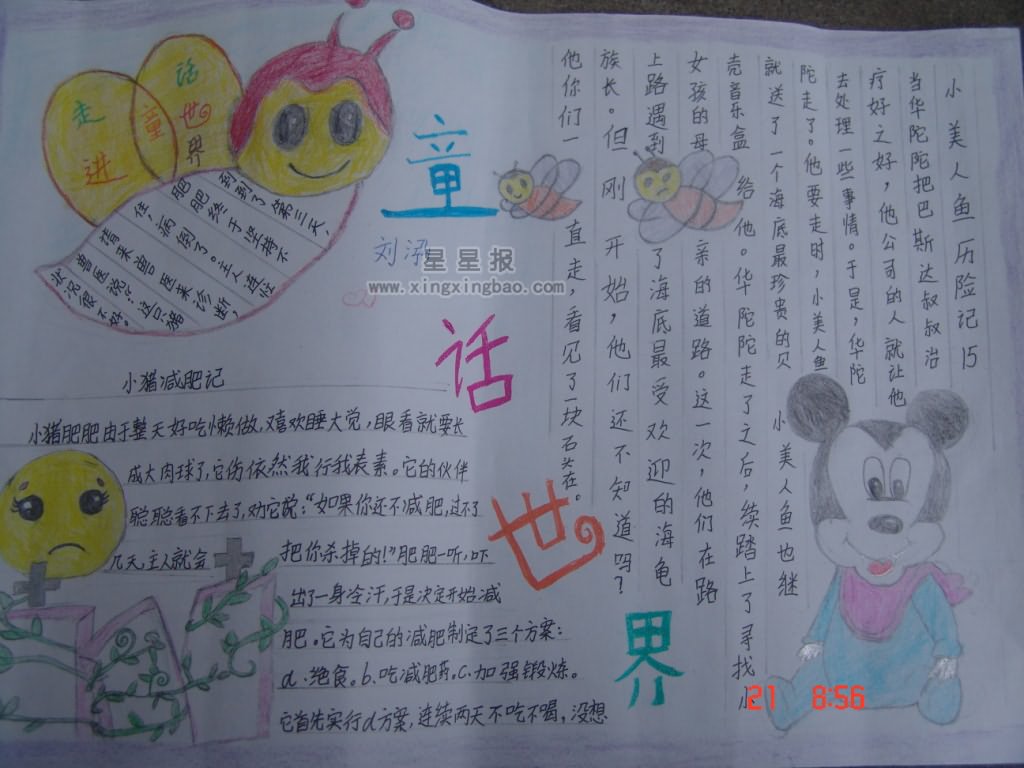 走进
童
话世界
童
话
世
界
刘泓
星星报
www.xingxingbao.com
小美人鱼历险记15
当华陀陀把巴斯达叔叔治
疗好之好，他公司的人就让他
去处理一些事情。于是，华陀
陀走了。他要走时，小美人鱼
就送了一个海底最珍贵的贝
壳音乐盒给他。华陀陀走了之后，小美人鱼也继
续踏上了寻找小
女孩的母亲的道路。这一次，他们在路
上路遇到了海底最受欢迎的海龟
族长。但刚开始，他们还不知道吗？
他你们一直走，看见了一块石头在。
小猪减肥记
小猪肥肥由于整天好吃懒做，又喜欢睡大觉，眼看就要长
成大肉球了，它伤依然我行我素。它的伙伴
聪聪看不下去了，劝它说：“如果你还不减肥，过不了
几天，主人就会把你杀掉的！”肥肥一听，吓
出了一身冷汗，于是决定开始减
肥。它为自己的减肥制定了三个方案：
a.绝食。b.吃减肥药。c.加强锻炼。
它首先实行a方案，连续两天不吃不喝，没想
到到了第三天，
肥肥终于坚持不
住，病倒了。主人连忙
请来兽医来诊断，
兽医说：“这只猪
状况很不好。
21 8:56